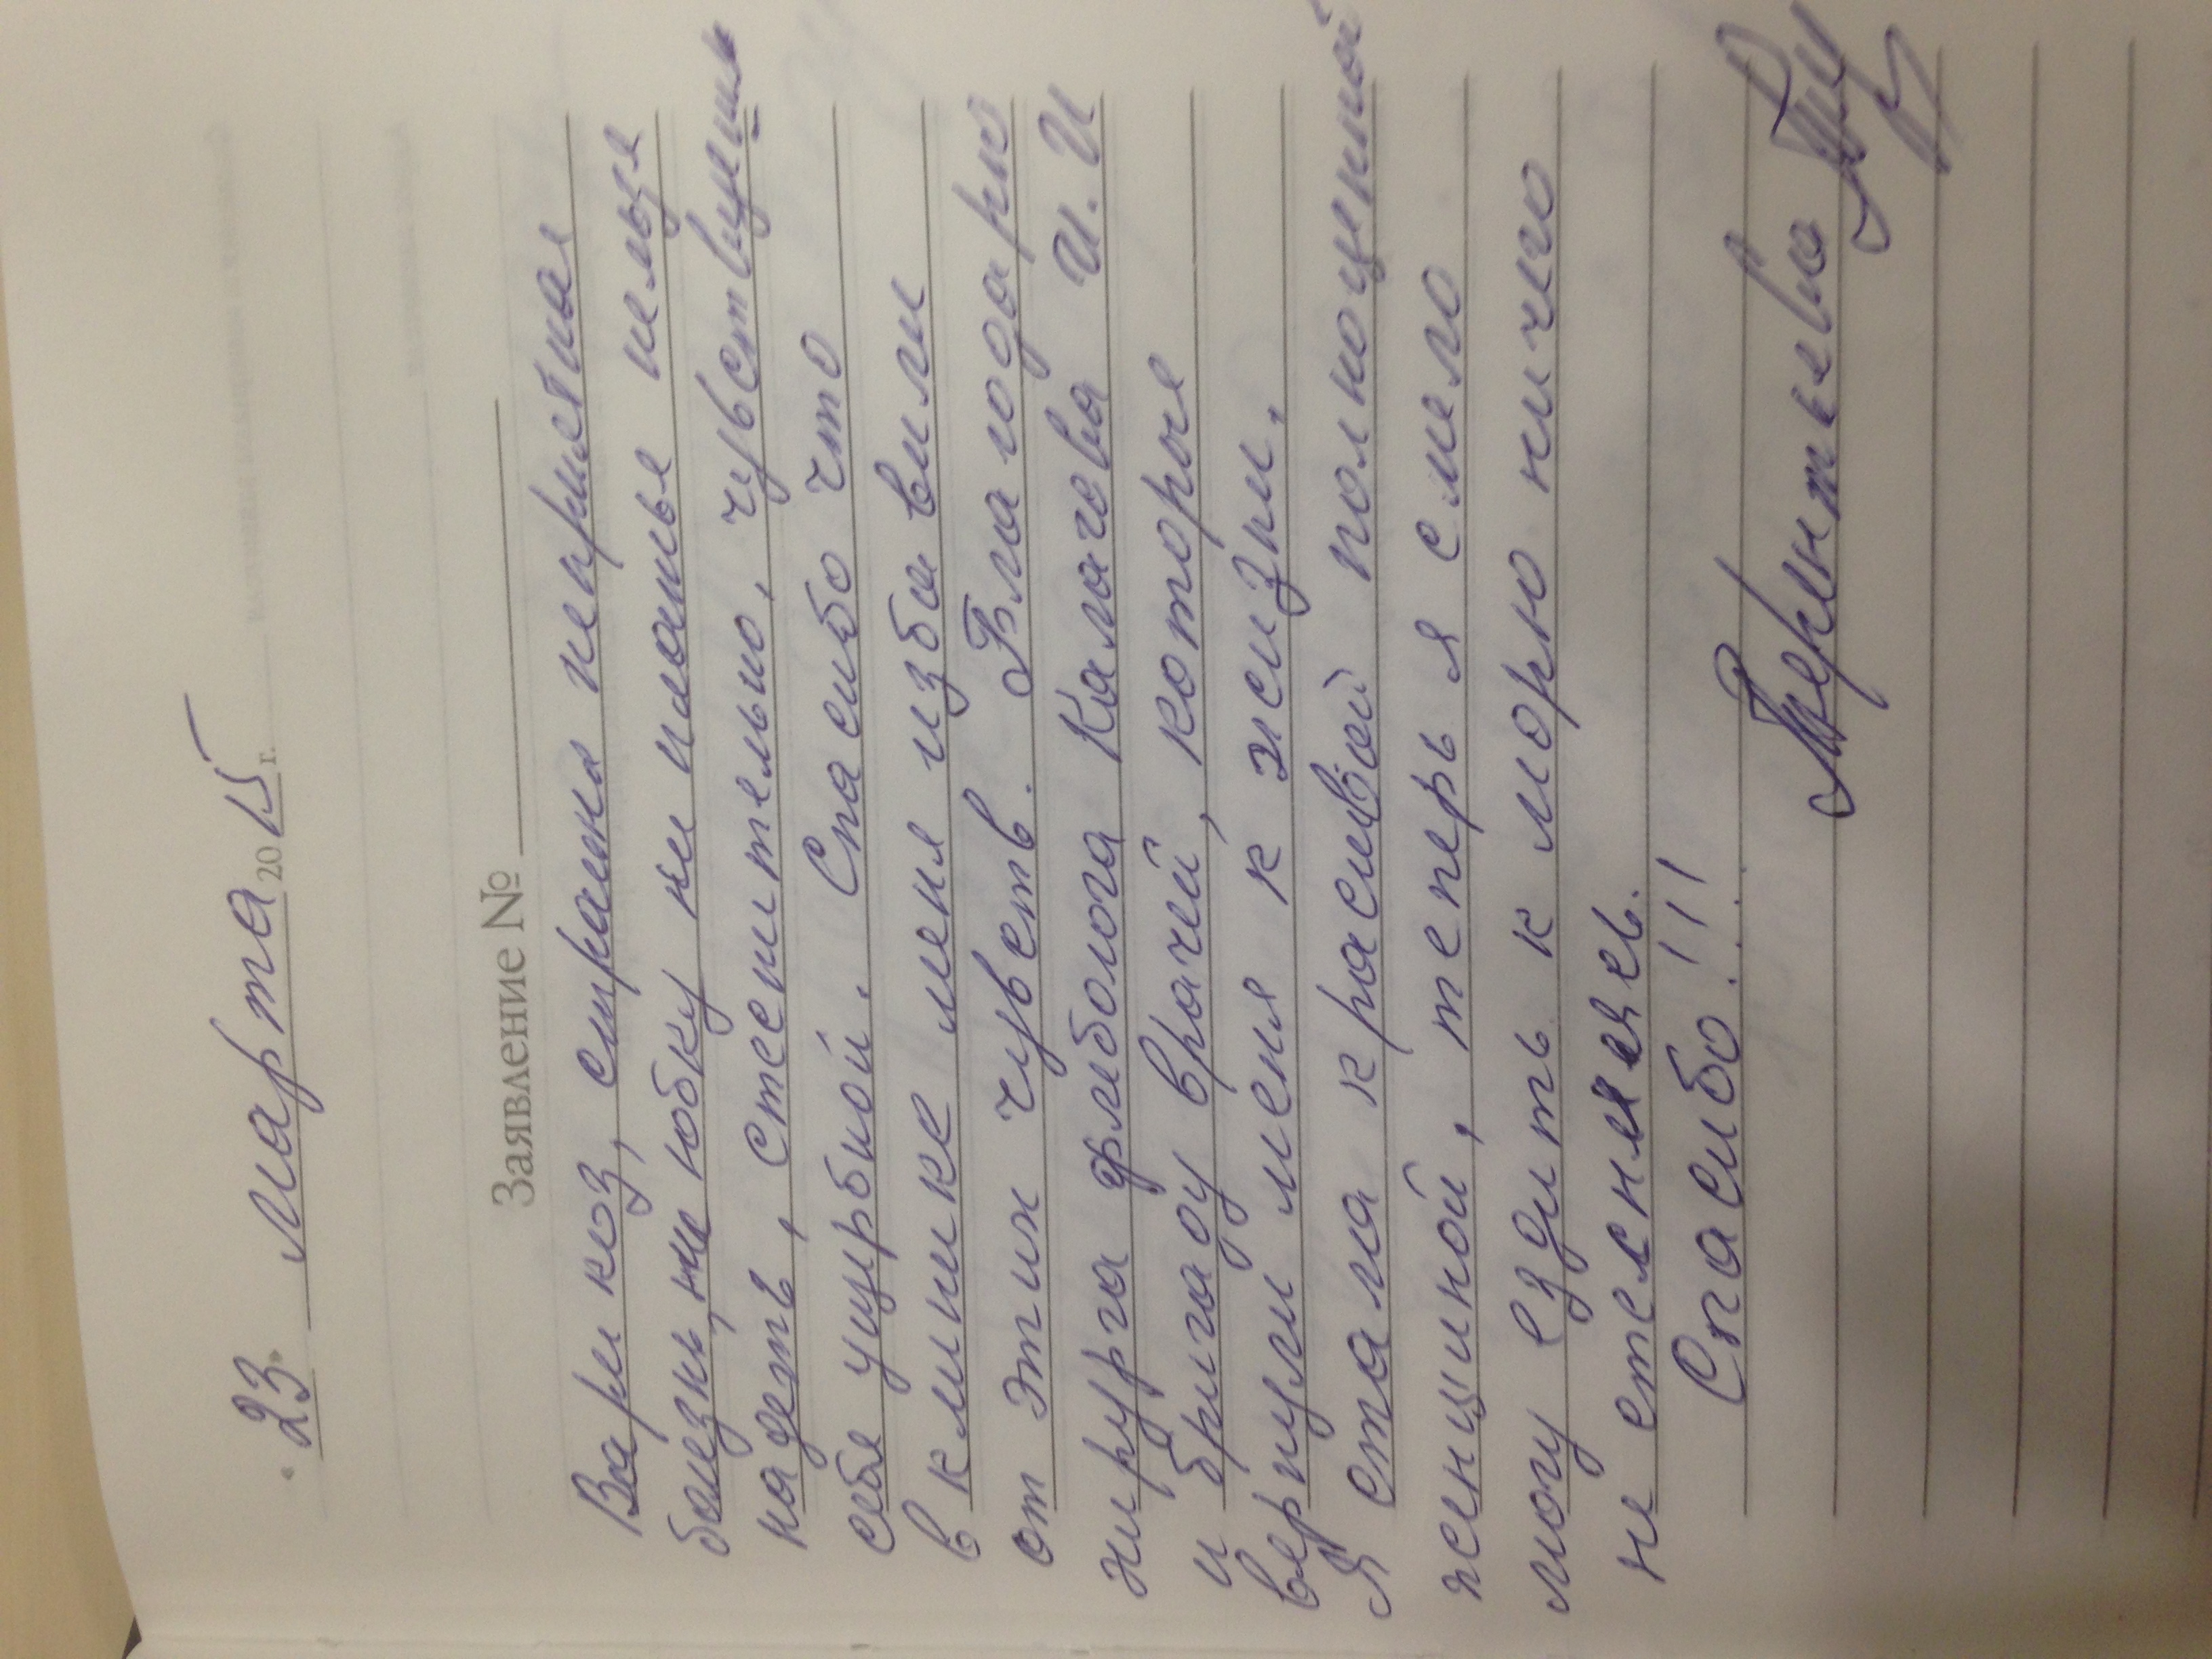 "23" марта 2015 г.
Заявление №
Варикоз, страшна неприятная
болезнь, ни юбку ни платье нельзя
надеть, стеснительно, чувствуешь
себя ущербной. Спасибо что
в клинике меня избавили
от этих чувств. Благодарю
хирурга флеболога Калачева И.И
и бригаду врачей, которые
вернули меня к жизни.
Я стала красивой полноценной
женщиной, теперь я смело
могу ездить к морю ничего
не стесняясь.
Спасибо!!!
Терентьева